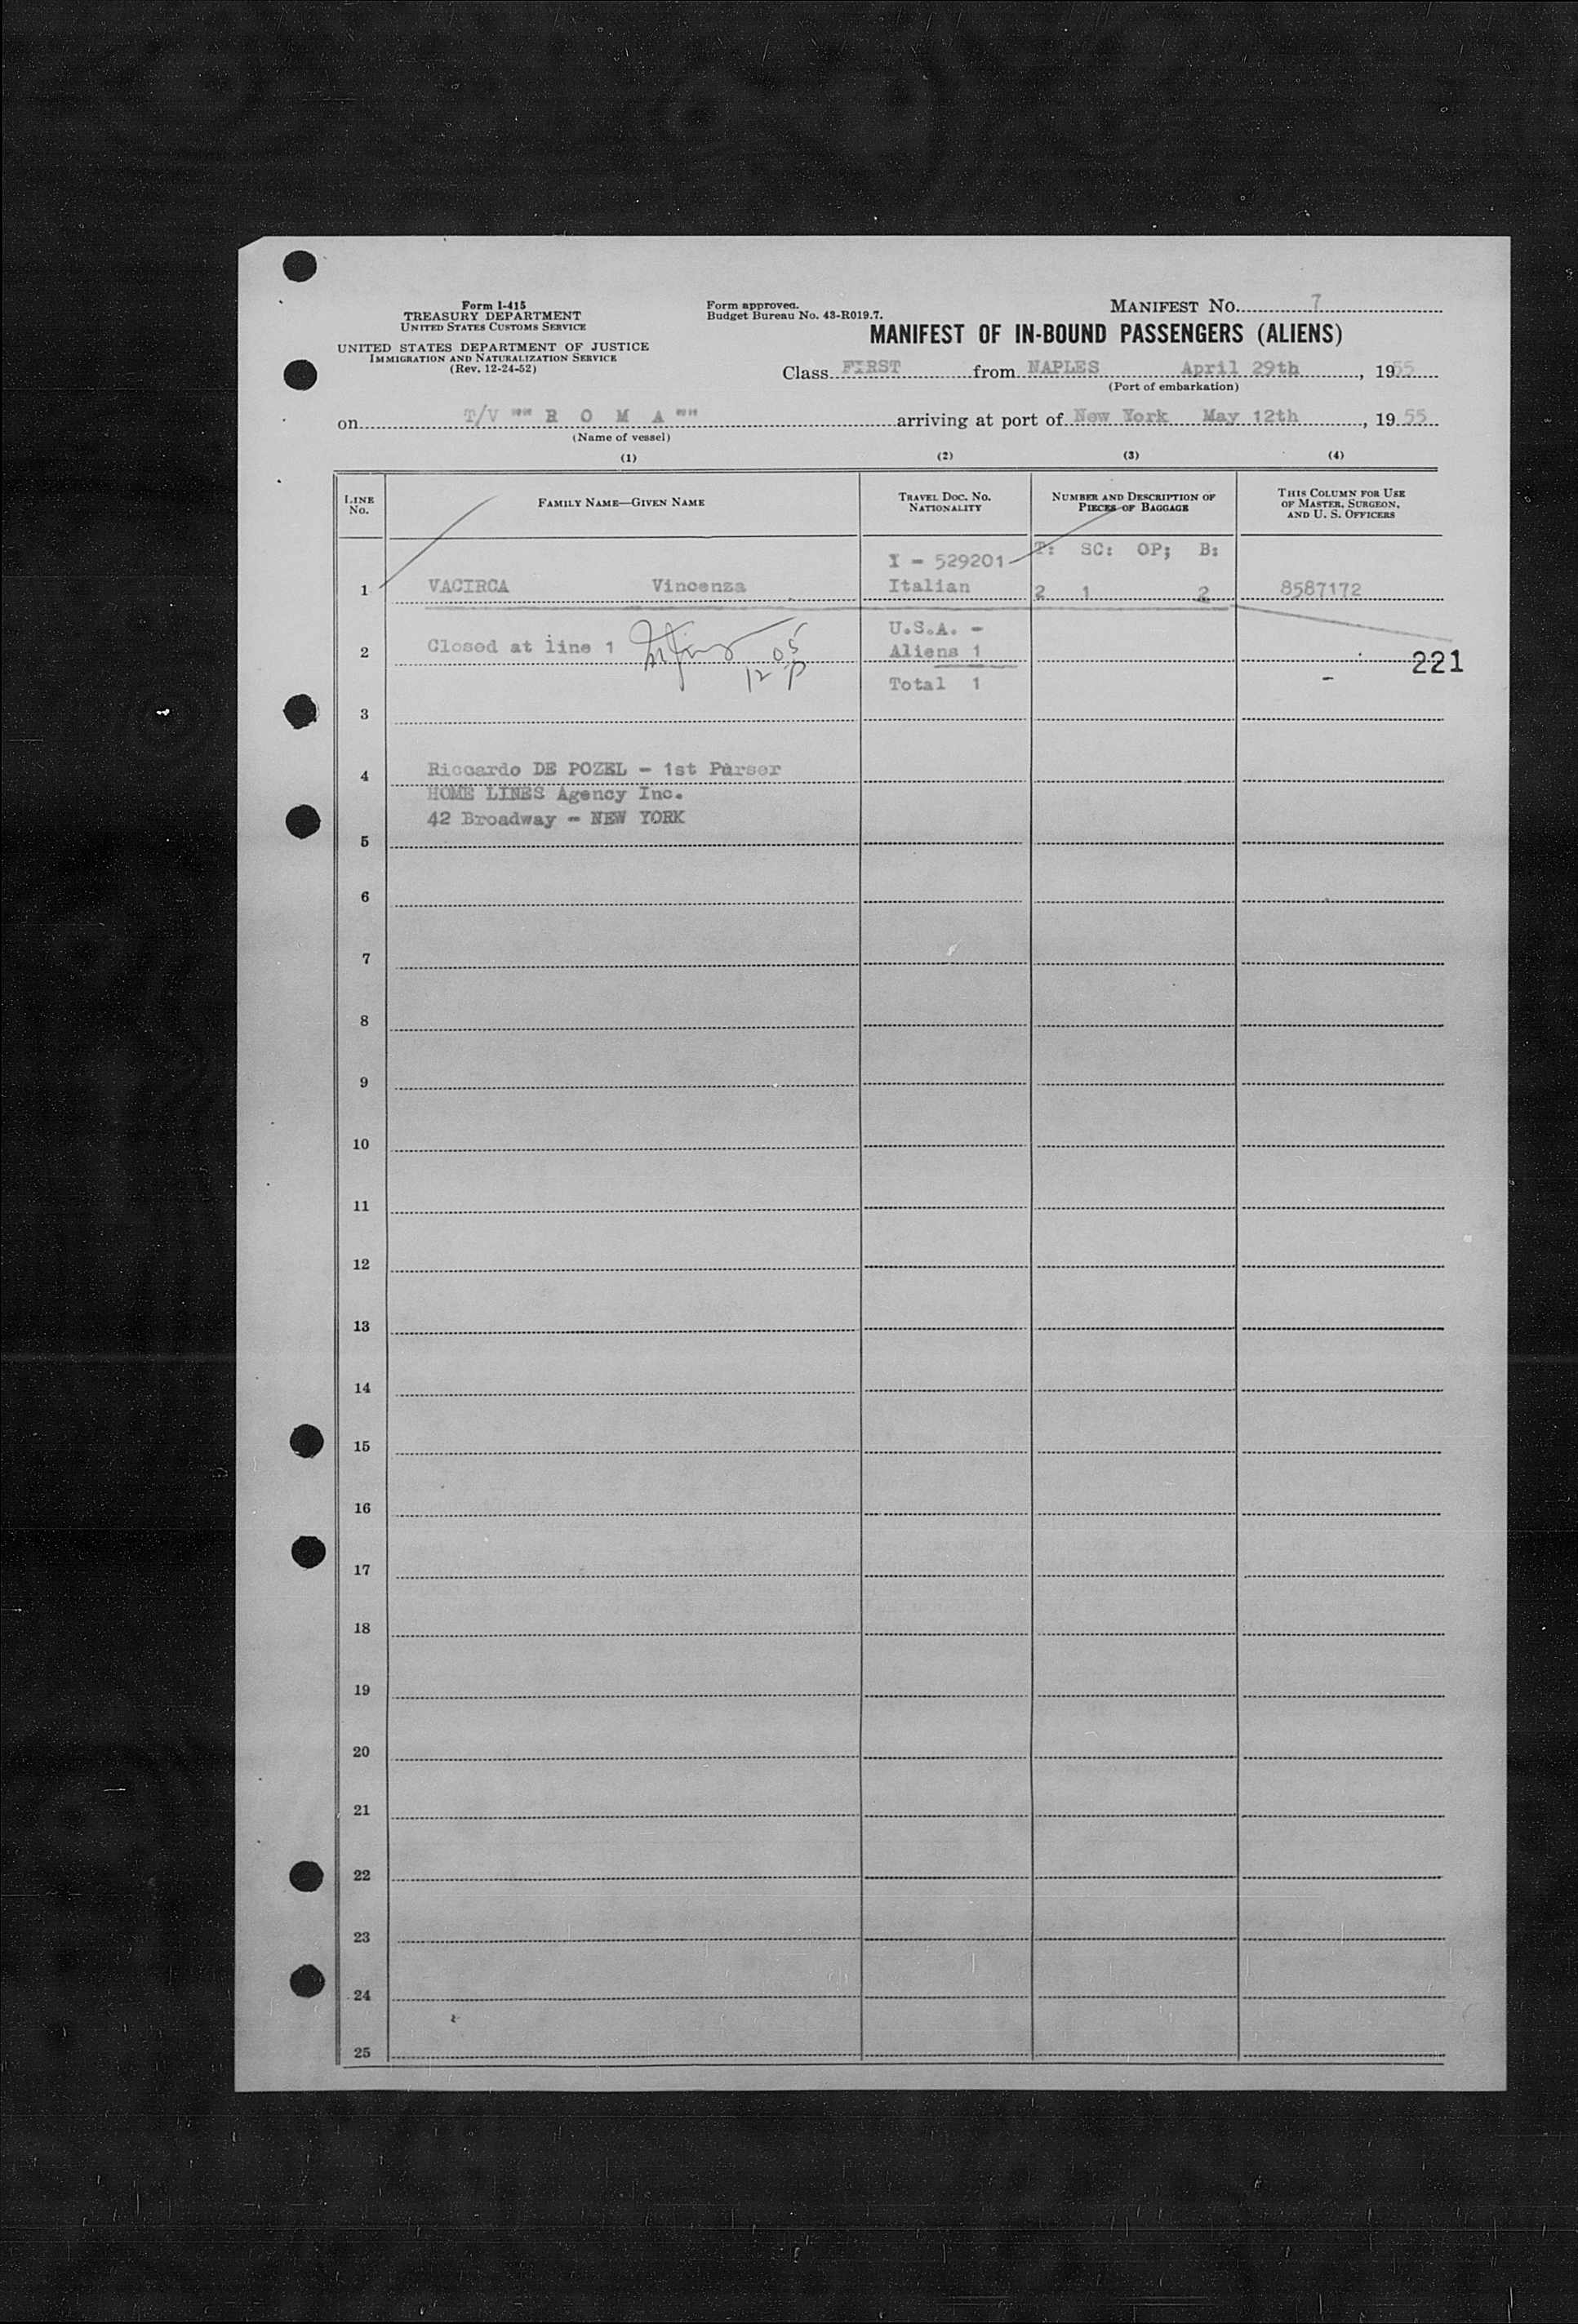 Form I-415
TREASURY DEPARTMENT
UNITED STATES CUSTOMS SERVICE
UNITED STATES DEPARTMENT OF JUSTICE
IMMIGRATION AND NATURALIZATION SERVICE
(Rev. 12-24-52)
Form approved.
Budget Bureau No. 43-R019.7.
MANIFEST NO. 7
MANIFEST OF IN-BOUND PASSENGERS (ALIENS)
Class FIRST from NAPLES April 29th, 1955
(Port of embarkation)
on T/V "" R O M A "" arriving at port of New York May 12th, 1955
(Name of vessel)
(1) (2) (3) (4)
LINE NO. FAMILY NAME—GIVEN NAME TRAVEL DOC. NO. NATIONALITY NUMBER AND DESCRIPTION OF PIECES OF BAGGAGE THIS COLUMN FOR USE OF MASTER, SURGEON, AND U. S. OFFICERS
I - 529201 T: SC: OP; B:
1 VACIRCA Vincenza Italian 2 1 2 8587172
U.S.A. -
2 Closed at line 1 12 05 p Aliens 1 221
Total 1
3
4 Riccardo DE POZEL - 1st Purser
HOME LINES Agency Inc.
42 Broadway - NEW YORK
5
6
7
8
9
10
11
12
13
14
15
16
17
18
19
20
21
22
23
24
25